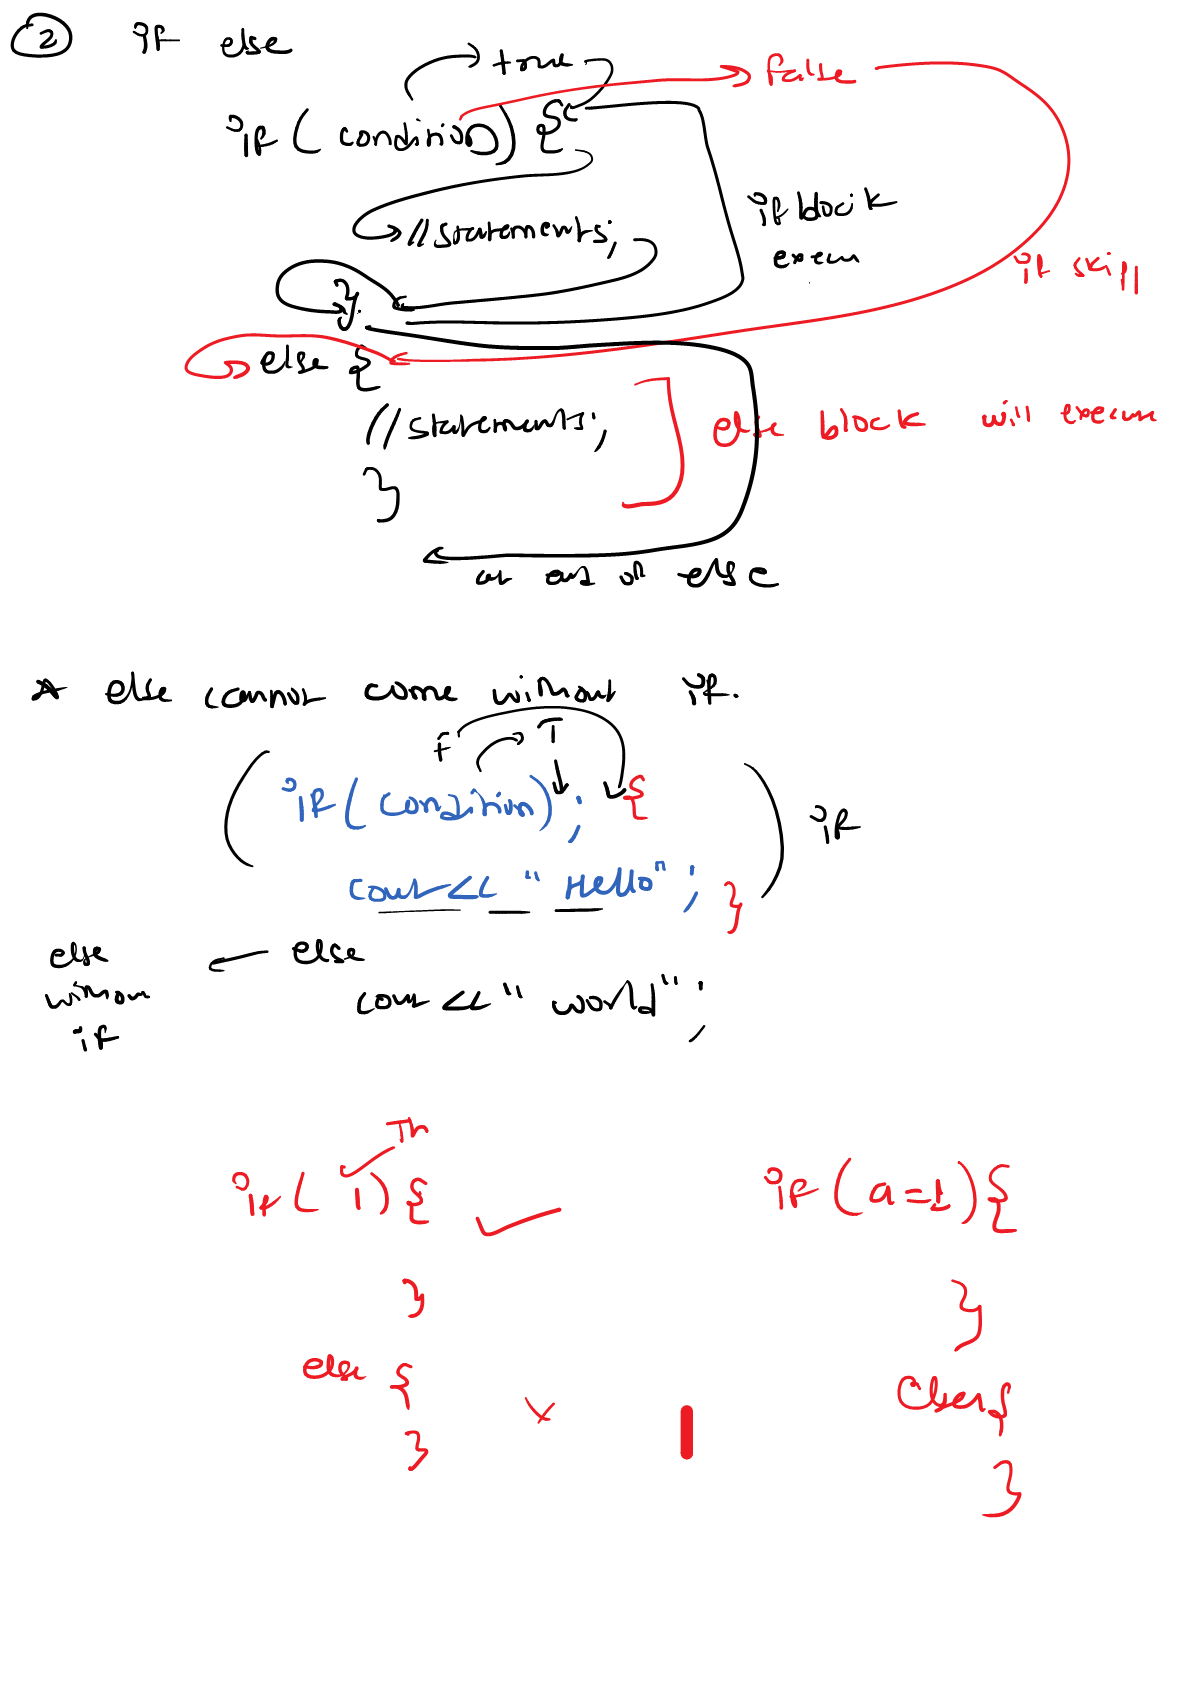 2 if else
true false
if ( condition ) {
//statements;
if block
execu
if skip
}
else {
//statements;
else block will execute
}
at end of else
* else cannot come without if.
F T
if ( condition ) ; {
if
cout << "Hello" ; }
else without if
else
cout << "world" ;
if ( 1 ) {
if ( a = 1 ) {
}
}
else {
else {
}
}